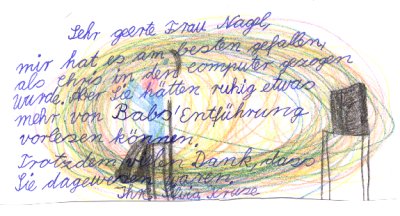 Sehr geerte Frau Nagel,
mir hat es am besten gefallen,
als Chris in den computer gezogen
wurde. Aber Sie hätten ruhig etwas
mehr von Babs' Entführung
vorlesen können.
Trotzdem vielen Dank, dass
Sie dagewesen waren.
Ihre Kruse